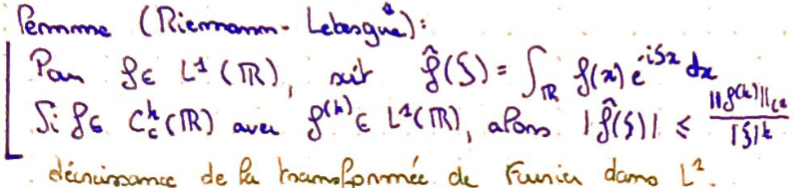 Lemme (Riemann-Lebesgue):
Pour f ∈ L¹(ℝ), soit f̂(ξ) = ∫_ℝ f(x) e^{-iξx} dx
Si f ∈ C_c^k(ℝ) avec f^{(k)} ∈ L¹(ℝ), alors |f̂(ξ)| ≤ ||f^{(k)}||_{L¹} / |ξ|^k
décroissance de la transformée de Fourier dans L¹.